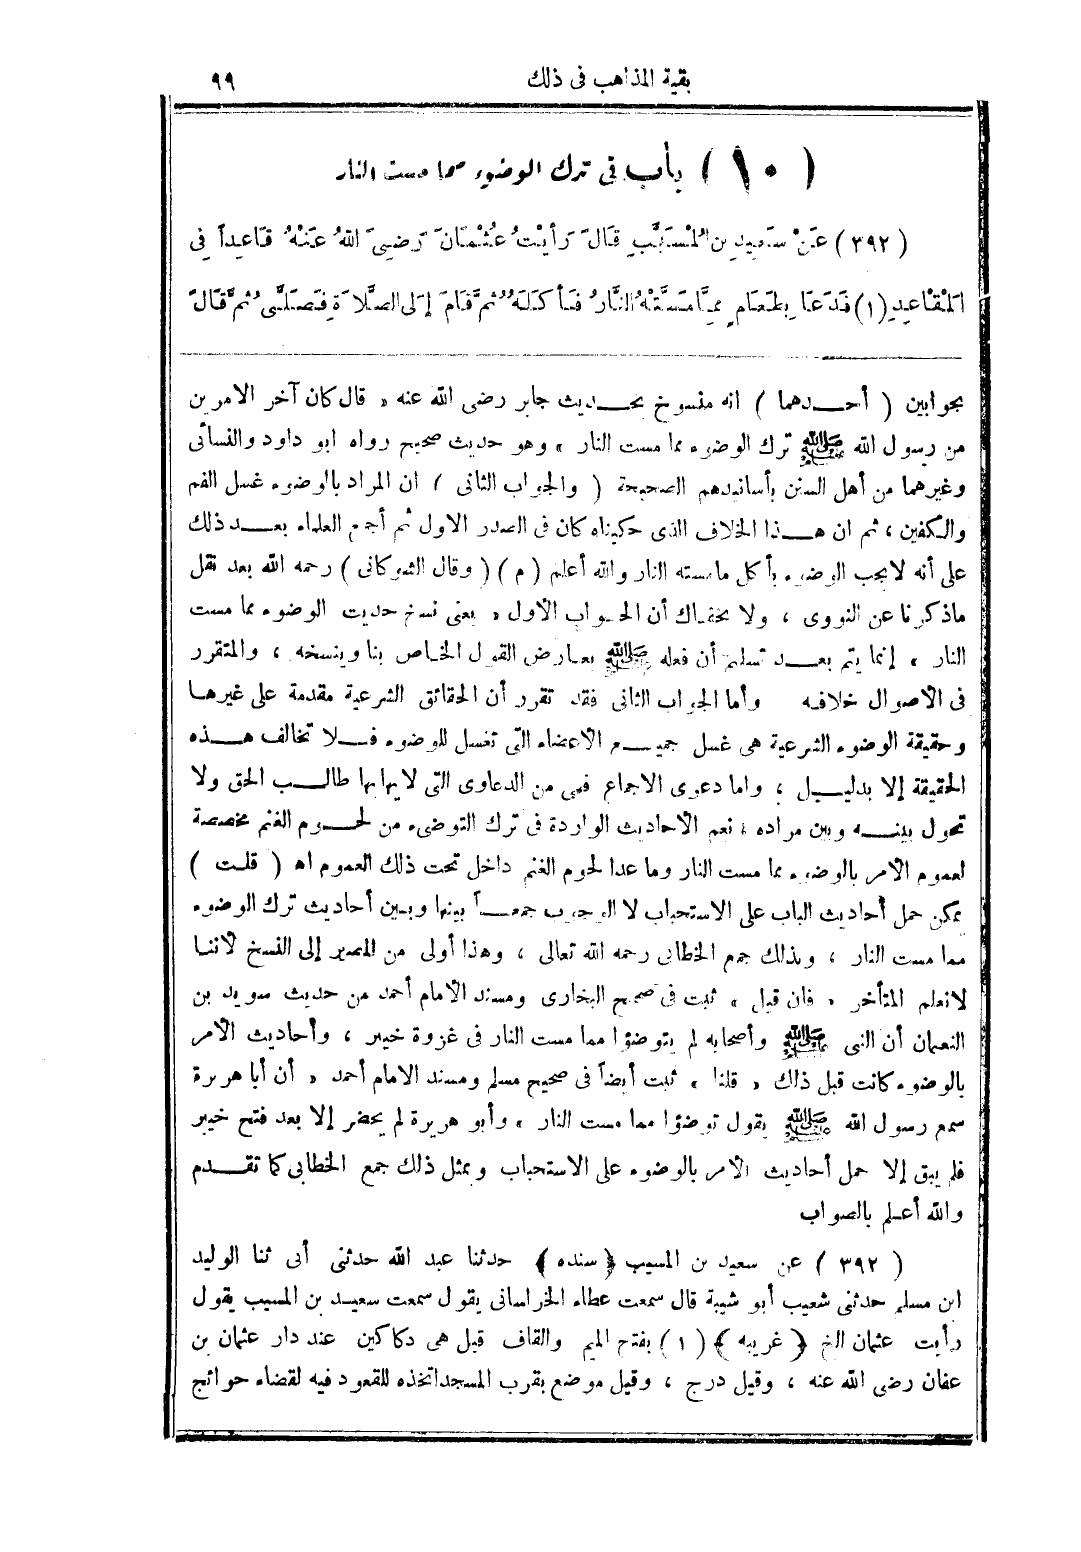 بقية المذاهب فى ذلك ٩٩
( ١٠ ) باب فى ترك الوضوء مما مست النار
( ٣٩٢ ) عَنْ سَعِيدِ بْنِ الْمُسَيَّبِ قَالَ رَأَيْتُ عُثْمَانَ رَضِىَ اللهُ عَنْهُ قَاعِداً فِى
الْمَقَاعِدِ (١) فَدَعَا بِطَعَامٍ مِمَّا مَسَّتْهُ النَّارُ فَأَكَلَهُ ثُمَّ قَامَ إِلَى الصَّلاَةِ فَصَلَّى ثُمَّ قَالَ
بجوابين ( أحـــدهما ) انه منسوخ بحـــديث جابر رضى الله عنه « قال كان آخر الامرين
من رسول الله ﷺ ترك الوضوء مما مست النار » وهو حديث صحيح رواه ابو داود والنسائى
وغيرهما من أهل السنن بأسانيدهم الصحيحة ( والجواب الثانى ) ان المراد بالوضوء غسل الفم
والكفين ، ثم ان هـــذا الخلاف الذى حكيناه كان فى الصدر الاول ثم أجمع العلماء بعـــد ذلك
على أنه لا يجب الوضوء بأكل ما مسته النار والله أعلم ( م ) ( وقال الشوكانى ) رحمه الله بعد نقل
ماذكرنا عن النووى ، ولا يخفاك أن الجواب الاول « يعنى نسخ حديث الوضوء مما مست
النار » إنما يتم بعـــد تسليم أن فعله ﷺ يعارض القول الخاص بنا وينسخه ، والمتقرر
فى الاصوال خلافه وأما الجواب الثانى فقد تقرر أن الحقائق الشرعية مقدمة على غيرهـا
وحقيقة الوضوء الشرعية هى غسل جميـــع الاعضاء التى تغسل للوضوء فـــلا تخالف هـــذه
الحقيقة إلا بدليـــل ، واما دعوى الاجماع فهى من الدعاوى التى لايهابها طالـــب الحق ولا
تحول بينـــه وبين مراده ، نعم الاحاديث الواردة فى ترك التوضىء من لحـــوم الغنم مخصصة
لعموم الامر بالوضوء مما مست النار وما عدا لحوم الغنم داخل تحت ذلك العموم اه ( قلت )
يمكن حمل أحاديث الباب على الاستحباب لا الوجوب جمعـــاً بينها وبـين أحاديث ترك الوضوء
مما مست النار ، وبذلك جمع الخطابى رحمه الله تعالى ، وهذا أولى من المصير إلى النسخ لاننـا
لانعلم المتأخر « فان قيل » ثبت فى صحيح البخارى ومسند الامام أحمد من حديث سويد بن
النعمان أن النبى ﷺ وأصحابه لم يتوضؤا مما مست النار فى غزوة خيبر ، وأحاديث الامر
بالوضوء كانت قبل ذلك « قلنا » ثبت أيضاً فى صحيح مسلم ومسند الامام أحمد « أن أبا هريرة
سمع رسول الله ﷺ يقول توضؤا مما مست النار » وأبو هريرة لم يحضر إلا بعد فتح خيبر
فلم يبق إلا حمل أحاديث الامر بالوضوء على الاستحباب وبمثل ذلك جمع الخطابى كما تقـــدم
والله أعـلم بالصواب
( ٣٩٢ ) عن سعيد بن المسيب ﴿ سنده ﴾ حدثنا عبد الله حدثنى أبى ثنا الوليد
ابن مسلم حدثنى شعيب أبو شيبة قال سمعت عطاء الخراسانى يقول سمعت سعيـد بن المسيب يقول
رأيت عثمان الخ ﴿ غريبه ﴾ ( ١ ) بفتح الميم والقاف قيل هى دكاكين عند دار عثمان بن
عفان رضى الله عنه ، وقيل درج ، وقيل موضع بقرب المسجد اتخذه للقعود فيه لقضاء حوائج